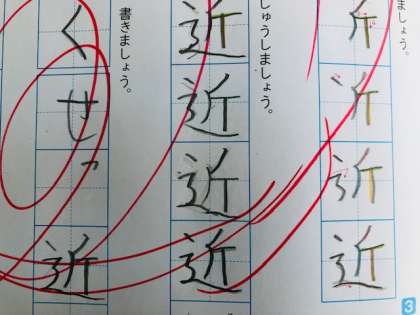 ましょう。
斤
近
しゅうしましょう。
近近近近
書きましょう。
くせっ近
3